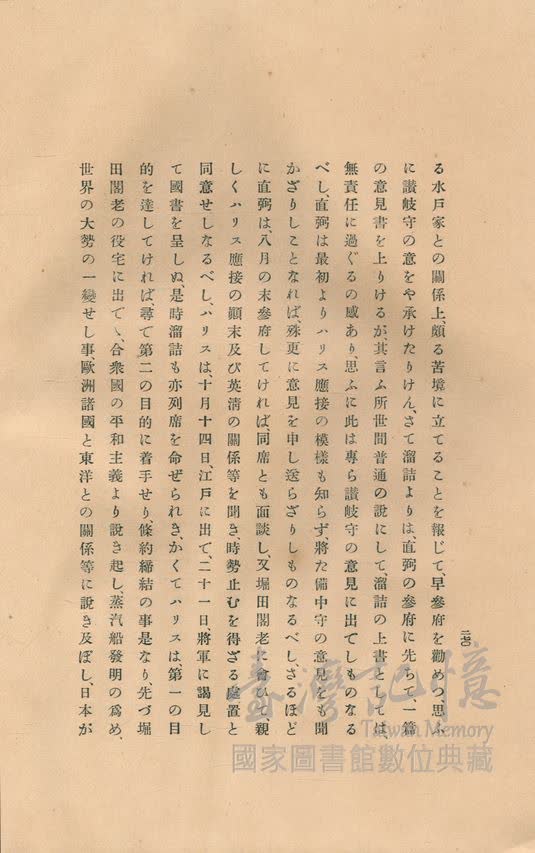 る水戸家との關係上、頗る苦境に立てることを報じて、早參府を勸めつ、思ふ
に讃岐守の意をや承けたりけん、さて溜詰よりは、直弼の參府に先ちて、一篇
の意見書を上りけるが、其言ふ所世間普通の説にして、溜詰の上書としては、
無責任に過ぐるの感あり、思ふに此は專ら讃岐守の意見に出でしものなる
べし、直弼は最初よりハリス應接の模樣も知らず、將た備中守の意見をも聞
かざりしことなれば、殊更に意見を申し送らざりしものなるべし、さるほど
に直弼は、八月の末參府してければ、同席とも面談し、又堀田閣老に會ひて、親
しくハリス應接の顚末及び英淸の關係等を聞き、時勢止むを得ざる處置と
同意せしなるべし、ハリスは、十月十四日、江戸に出で、二十一日、將軍に謁見し
て國書を呈しぬ、是時溜詰も亦列席を命ぜられき、かくてハリスは、第一の目
的を達してければ、尋で第二の目的に着手せり、條約締結の事是なり、先づ堀
田閣老の役宅に出でゝ、合衆國の平和主義より説き起し、蒸汽船發明の爲め、
世界の大勢の一變せし事、歐洲諸國と東洋との關係等に説き及ぼし、日本が
臺灣記憶
Taiwan Memory
國家圖書館數位典藏